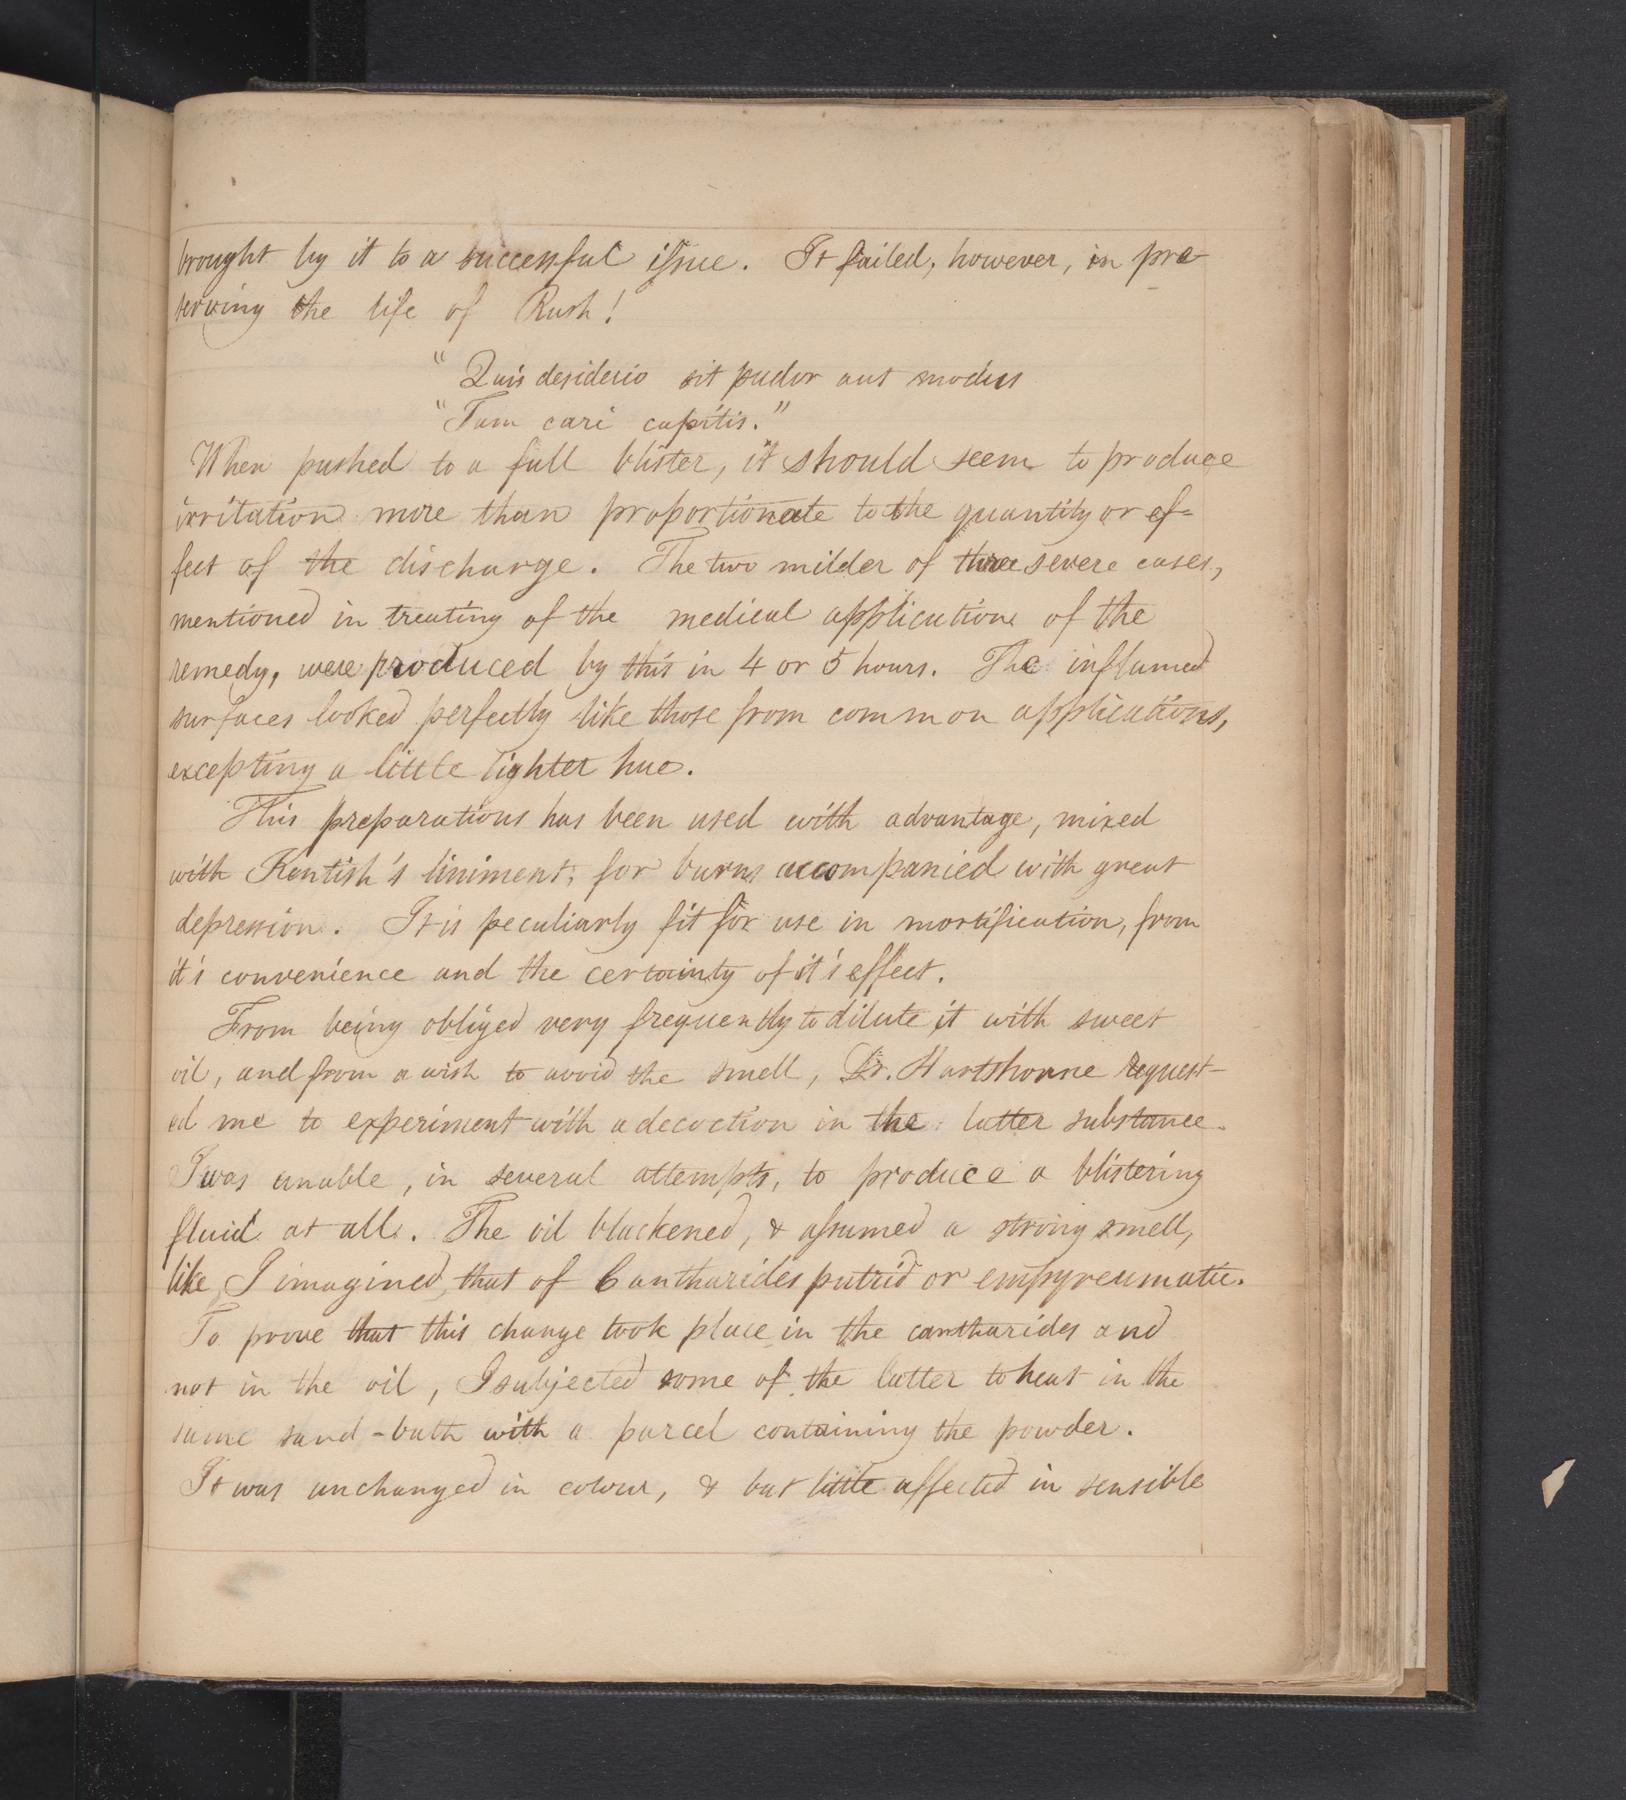 brought by it to a successful issue. It failed, however, in pre-
serving the life of Rush!
"Quis desiderio sit pudor aut modus
"Tam cari capitis."
When pushed to a full blister, it should seem to produce
irritation more than proportionate to the quantity or ef-
fect of the discharge. The two milder of three severe cases,
mentioned in treating of the medical applications of the
remedy, were produced by this in 4 or 5 hours. The inflamed
surfaces looked perfectly like those from common applications,
excepting a little lighter hue.
This preparations has been used with advantage, mixed
with Kentish's liniment, for burns accompanied with great
depression. It is peculiarly fit for use in mortification, from
it's convenience and the certainty of it's effect.
From being obliged very frequently to dilute it with sweet
oil, and from a wish to avoid the smell, Dr. Hartshorne request-
ed me to experiment with a decoction in the latter substance.
I was unable, in several attempts, to produce a blistering
fluid at all. The oil blackened, & assumed a strong smell,
like, I imagined, that of Cantharides putrid or empyreumatic.
To prove that this change took place in the cantharides and
not in the oil, I subjected some of the latter to heat in the
same sand-bath with a parcel containing the powder.
It was unchanged in colour, & but little affected in sensible